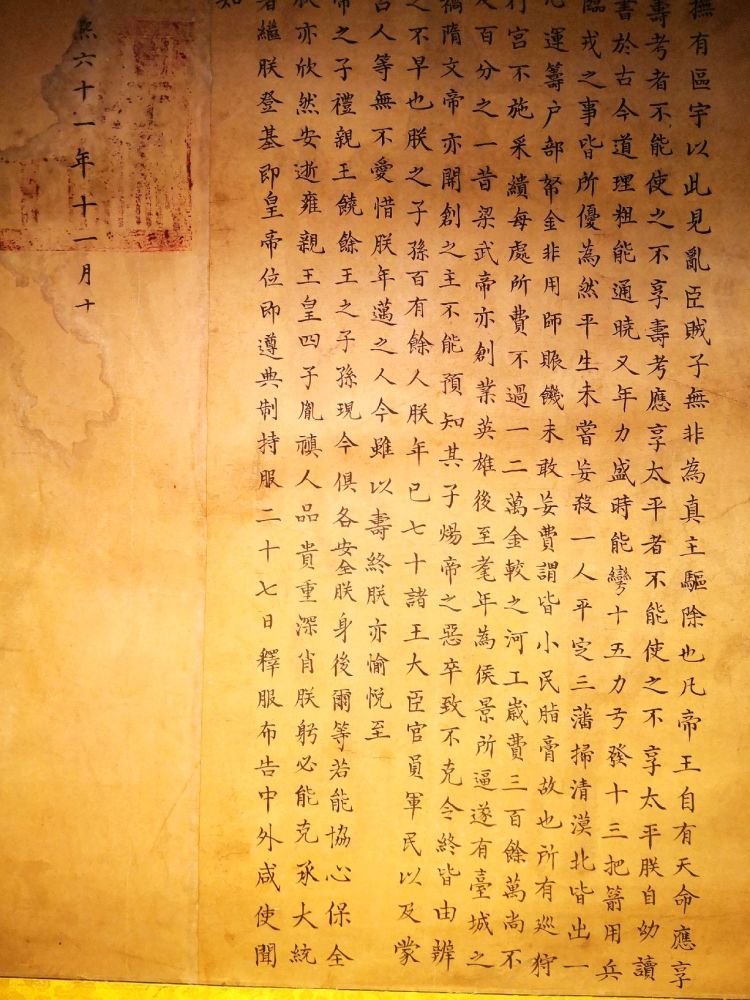 撫有區宇以此見亂臣賊子無非為真主驅除也凡帝王自有天命應享
壽考者不能使之不享壽考應享太平者不能使之不享太平朕自幼讀
書於古今道理粗能通曉又年力盛時能彎十五力弓發十三把箭用兵
臨戎之事皆所優為然平生未嘗妄殺一人平定三藩掃清漠北皆出一
運籌户部帑金非用師賑饑未敢妄費謂皆小民脂膏故也所有巡狩
行宮不施采繢每處所費不過一二萬金較之河工歲費三百餘萬尚不
及百分之一昔梁武帝亦創業英雄後至耄年為侯景所逼遂有臺城之
禍隋文帝亦開創之主不能預知其子煬帝之惡卒致不克令終皆由辨
之不早也朕之子孫百有餘人朕年已七十諸王大臣官員軍民以及蒙
古人等無不愛惜朕年邁之人今雖以壽終朕亦愉悅至
帝之子禮親王饒餘王之子孫現今俱各安全朕身後爾等若能協心保全
朕亦欣然安逝雍親王皇四子胤禛人品貴重深肖朕躬必能克承大統
著繼朕登基即皇帝位即遵典制持服二十七日釋服布告中外咸使聞
知
熙六十一年十一月十